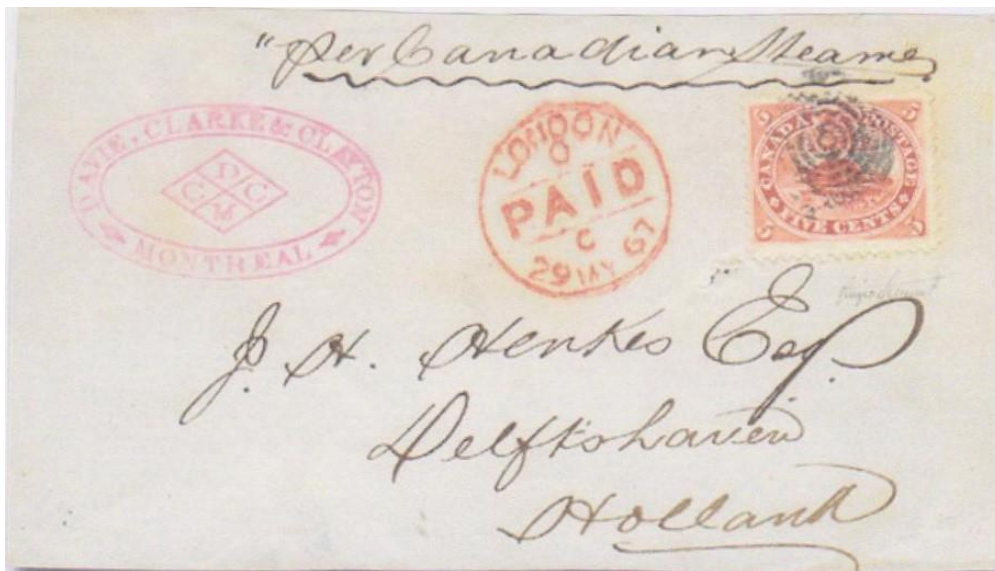 "Per Canadian Steamer
DAVIE, CLARKE & CLAYTON
D
C C
M
MONTREAL
LONDON
PAID
C
29 MY 67
5 5
CANADA POSTAGE
FIVE CENTS
5 5
J. H. Henkes Esq.
Delftshaven
Holland